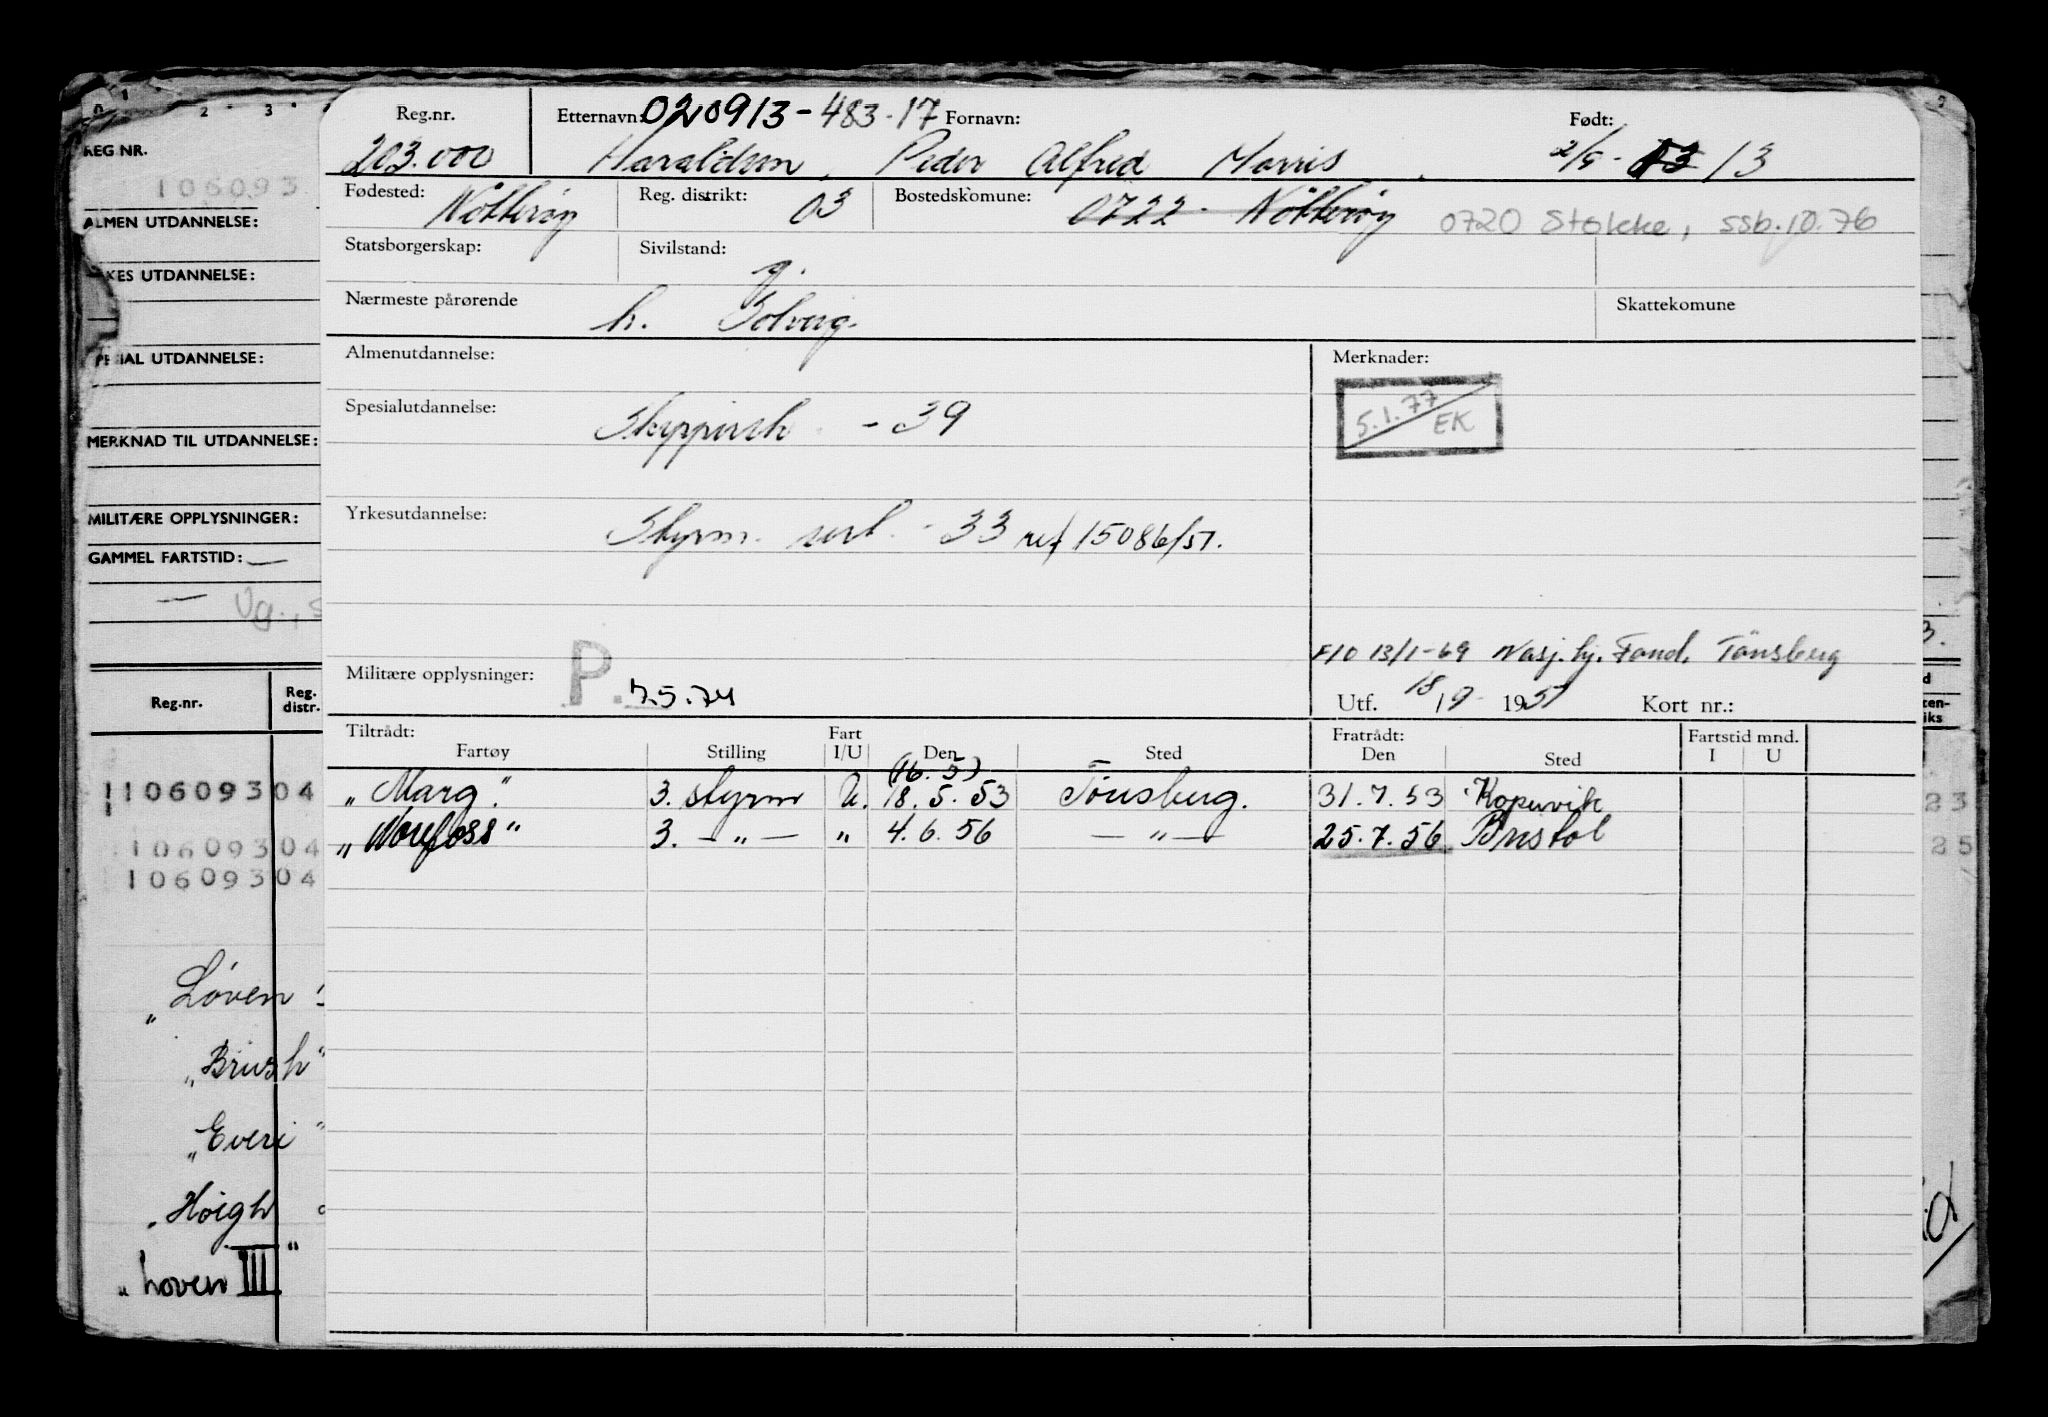 0 1 2 3
REG NR.
106093
ALMEN UTDANNELSE:
KES UTDANNELSE:
IAL UTDANNELSE:
MERKNAD TIL UTDANNELSE:
MILITÆRE OPPLYSNINGER:
GAMMEL FARTSTID: —
— Vg.,
Reg.nr. Reg. distr.
10609304
10609304
10609304
„Løven
„Brush"
„Everi"
„Høigh
„Loven III"
Reg.nr. Etternavn: 020913-483-17 Fornavn: Født:
203.000 Haraldsen, Peder Alfred Morris 2/9- 13
Fødested: Nøtterøy Reg. distrikt: 03 Bostedskomune: 0722 - Nøtterøy 0720 Stokke, ssb.10.76
Statsborgerskap: Sivilstand: g.
Nærmeste pårørende h. Solveig. Skattekomune
Almenutdannelse: Merknader:
5.1.77 EK
Spesialutdannelse: Skippersk. -39
Yrkesutdannelse: Styrm. sert. -33 ref 15086/51.
F/O 13/1-69 Nasj. hj. Fond. Tønsberg
Militære opplysninger: P. 7.5.74
Utf. 18/9- 1951 Kort nr.:
Tiltrådt: Fart Fratrådt: Fartstid mnd.
Fartøy Stilling I/U Den Sted Den Sted I U
(16.5)
„Marg." 3. styrm U. 18.5.53 Tönsberg. 31.7.53 Kopervik
„Norefoss" 3. —„— „ 4.6.56 —„— 25.7.56 Bristol
23
25